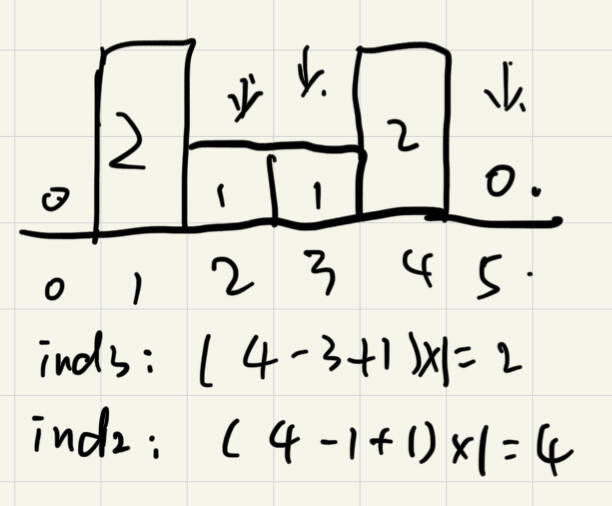 2 2
0 1 1 0.
0 1 2 3 4 5.
ind3: (4-3+1)x1=2
ind2: (4-1+1)x1=4